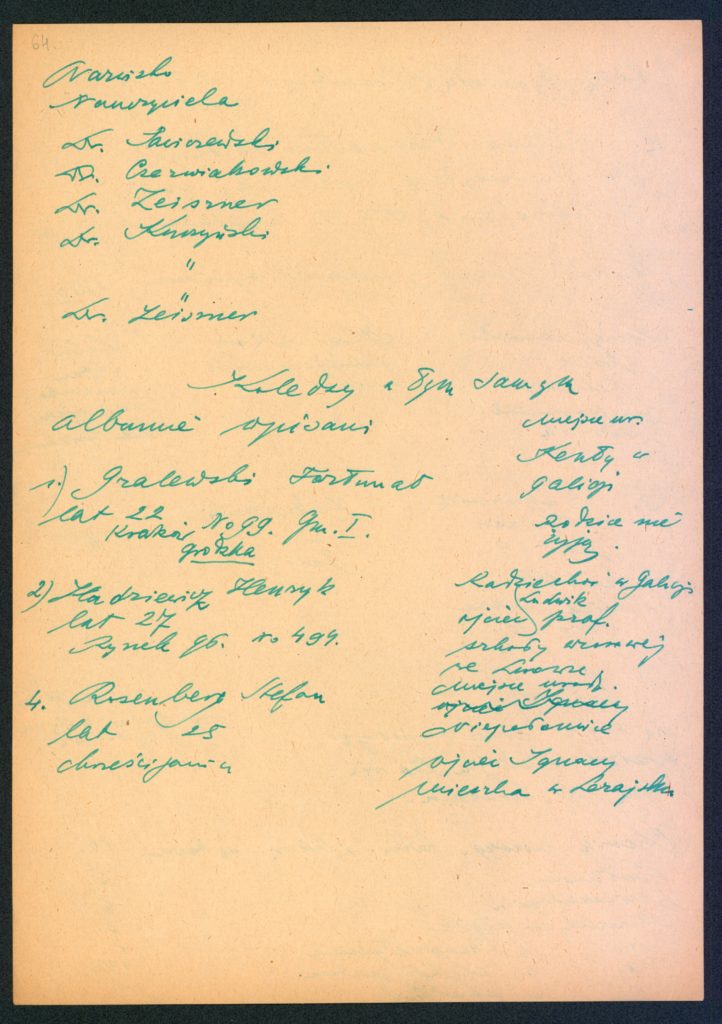 64.
Nazwisko
Nauczyciela
Dr. Sawiczewski
Dr. Czerwiakowski
Dr. Zeiszner
Dr. Kuczyński
"
Dr. Zeiszner
Koledzy w tym samym
albumie wpisani
miejsce ur.
Kenty w
Galicji
rodzice nie
żyją.
1.) Gralewski Fortunat
lat 22
Kraków No 99. Gm. I.
grodzka
2) Hadziewicz Henryk
lat 27
Rynek gł. No 494.
Radziechów w Galicji
Ludwik
ojciec prof.
szkoły
we Lwowie
4. Rosenberg Stefan
lat 25
chrześcijanin
miejsce urodz.
ojciec Ignacy
Niepołomice
ojciec Ignacy
mieszka w Leżajsku